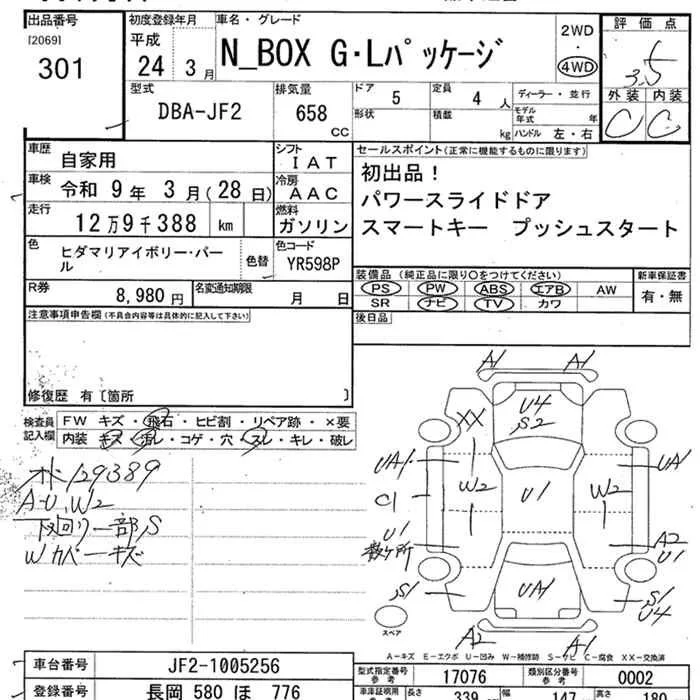 出品番号
[2069]
301
初度登録年月
平成
24 3月
車名・グレード
N_BOX G・Lパッケージ
2WD
・
4WD
評価点
3.5
外装 内装
C C
型式
DBA-JF2
排気量
658
CC
ドア
5
定員
4 人
形状
積載
kg
ディーラー・並行
モデル年式 年
ハンドル 左・右
車歴
自家用
シフト
IAT
車検
令和 9年 3月(28日)
冷房
AAC
走行
12万9千388 km
燃料
ガソリン
色
ヒダマリアイボリー・パール
色替
色コード
YR598P
R券
8,980 円
名変通知期限
月 日
セールスポイント(正常に機能するものに限ります)
初出品!
パワースライドドア
スマートキー プッシュスタート
装備品(純正品に限り○をつけてください)
PS PW ABS エアB AW
SR ナビ TV カワ
新車保証書
有・無
後日品
注意事項申告欄(不具合内容等は具体的に記入して下さい)
修復歴 有〔箇所 〕
検査員
記入欄
FW キズ・飛石・ヒビ割・リペア跡・×要
内装 キズ・汚レ・コゲ・穴・スレ・キレ・破レ
オド129389
A-U, W2
下廻り一部S
Wカバーキズ
A1 A1
U4
S2
XX
UA1
W2
U1
W2
UA1
C1
U1
数ヶ所
A2
U1
S1
UA1
S1
U4
A2 A1
スペア
A-キズ E-エクボ U-凹み W-補修跡 S-サビ C-腐食 XX-交換済
車台番号
JF2-1005256
型式指定番号
参考
17076
類別区分番号
参考
0002
登録番号
長岡 580 ほ 776
車庫証明用
長さ
339
幅
147
高さ
180